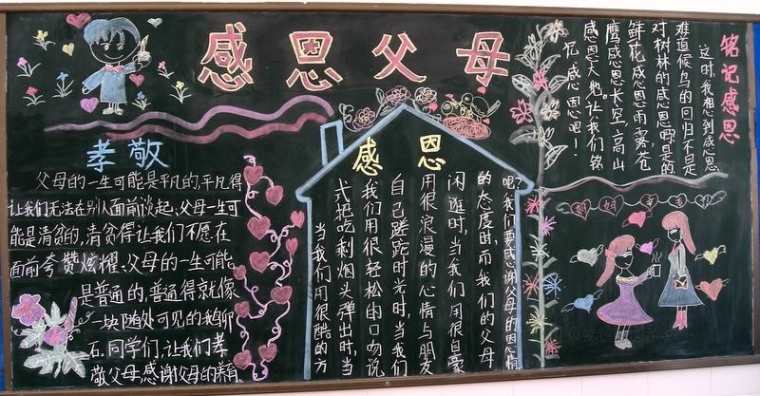 感恩父母
孝敬
父母的一生可能是平凡的,平凡得
让我们无法在别人面前谈起、父母一生可
能是清贫的,清贫得让我们不愿在
面前夸赞炫耀、父母的一生可能
是普通的,普通得就像
一块随处可见的鹅卵
石.同学们,让我们孝
敬父母,感谢父母的精
感恩
当我们用很酷的方
式把吃剩烟头弹出时,当
我们用很轻松的口吻说
自己蹉跎时光时,当我们
用很浪漫的心情与朋友
闲逛时,当我们用很自豪
的态度时,而我们的父母
吧!我们要感谢父母的恩情
铭记感恩
这时,我想到感恩
难道候鸟的回归不是
对树林的感恩吗?是的
鲜花感恩雨露,苍
鹰感恩长空,高山
感恩大地。让我们铭
记感恩吧!